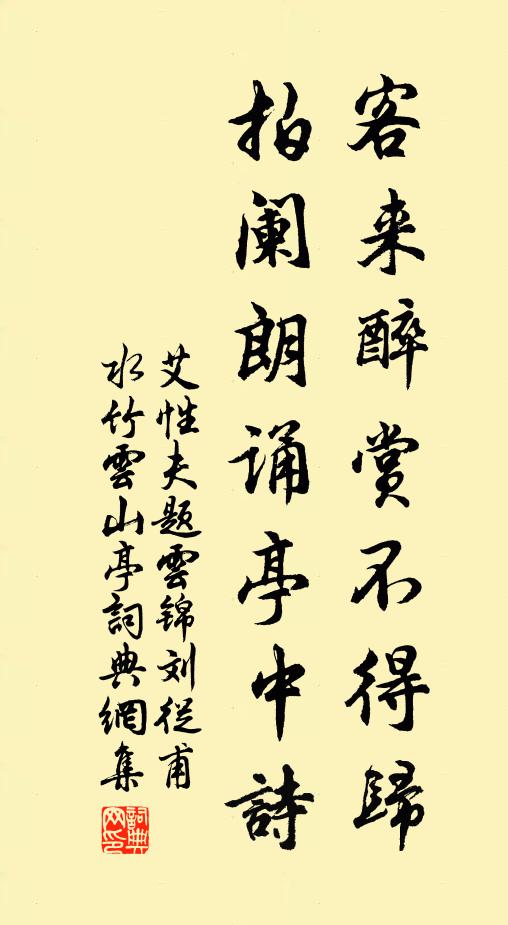 客来醉赏不得歸
拍阑朗诵亭中詩
艾性夫題雲锦刘從甫
水竹雲山亭詞典網集
詞典网印